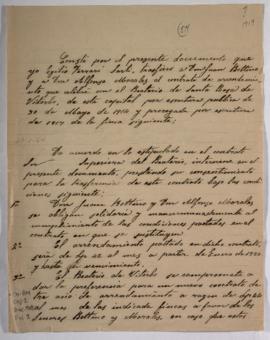 Consta por el presente documento que
yo Egilio Ferrari Sarti, trasfiero a Don Juan Bottino,
y a Don Alfonso Morales el contrato de arrendamien-
to que celebré con el Beaterio de Santa Rosa de
Viterbo, de esta capital por escritura publica de
30 de Mayo de y prorrogada por escritura
de 1917 de la finca siguiente:
De acuerdo en lo estipulado en el contrato
Superiora del Beaterio, interviene en el
presente documento, prestando su consentimiento
para la trasferencia de este contrato bajo las condi-
ciones siguientes:
1ª Don Juan Bottino y Don Alfonso Morales
se obligan solidaria y mancomunadamente al
cumplimiento de las condiciones pactadas en el
contrato, en que se sustituyen
2ª El arrendamiento pactado en dicho contrato,
será de al mes a partir de Enero de 1920
y hasta su vencimiento.
3ª El Beaterio de Viterbo se compromete a
dar la preferencia para un nuevo contrato de
tres años de arrendamiento a razon de
al mes de las indicadas fincas a favor de los
Señores Bottino y Morales, en caso que estos